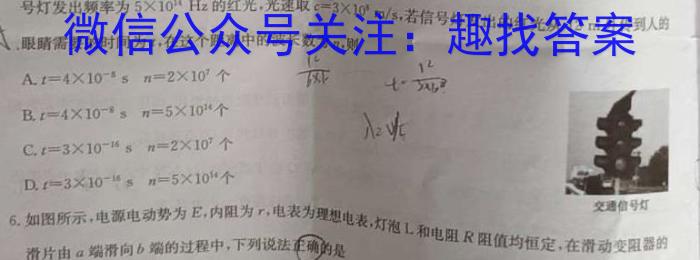 号灯发出频率为 5×10¹⁴ Hz 的红光,光速取 c=3×10⁸ m/s,若信号
到人的
眼睛需要的时间为
微信公众号关注：趣找答案
A. t=4×10⁻⁸ s n=2×10⁷ 个
B. t=4×10⁻⁸ s n=5×10¹⁴ 个
C. t=3×10⁻¹⁶ s n=2×10⁷ 个
D. t=3×10⁻¹⁶ s n=5×10¹⁴ 个
交通信号灯
6. 如图所示,电源电动势为 E,内阻为 r,电表为理想电表,灯泡 L 和电阻 R 阻值均恒定,在滑动变阻器的
滑片由 a 端滑向 b 端的过程中,下列说法正确的是